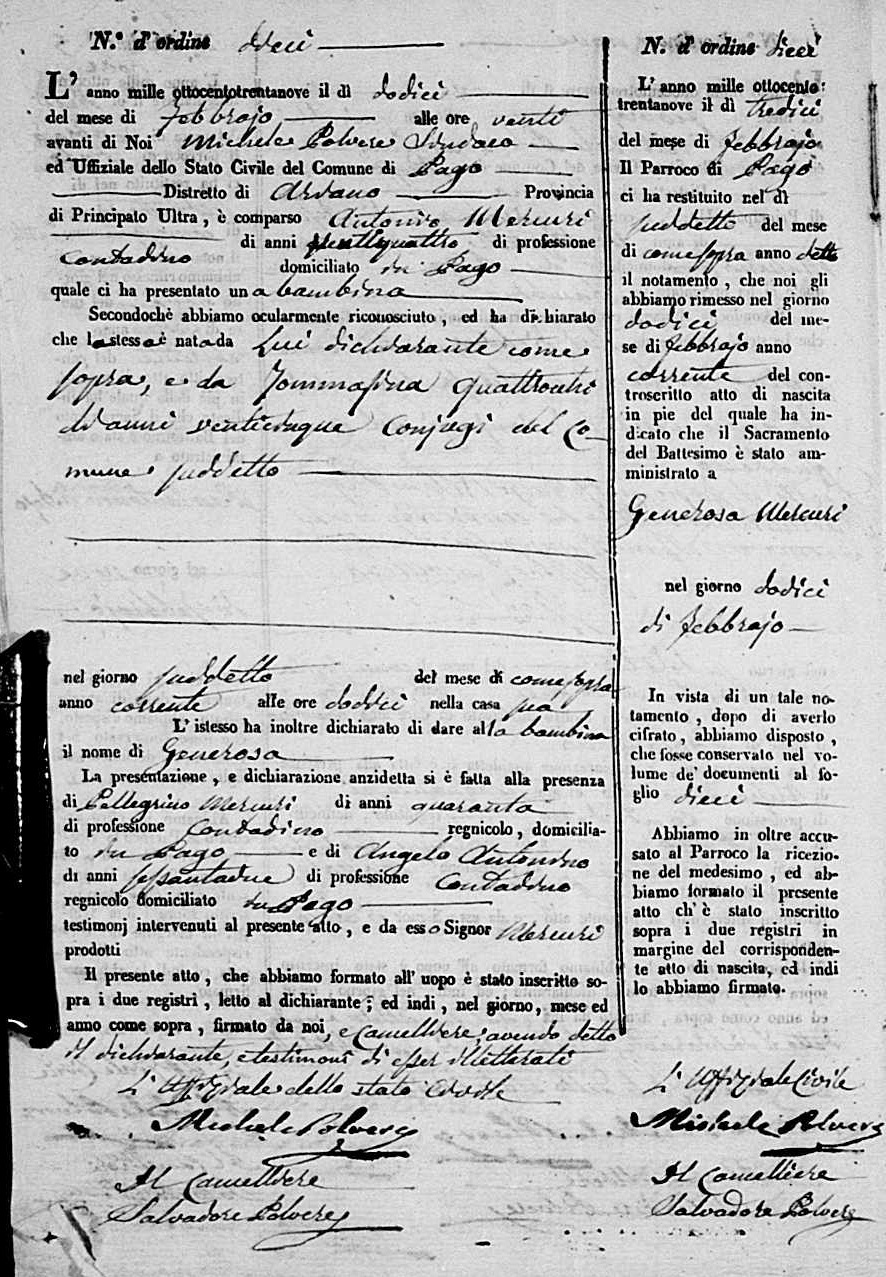 N.° d'ordine dieci
L' anno mille ottocentotrentanove il dì dodici
del mese di Febbrajo alle ore venti
avanti di Noi Michele Polvere Sindaco
ed Uffiziale dello Stato Civile del Comune di Pago
Distretto di Ariano Provincia
di Principato Ultra, è comparso Antonio Mercuri
di anni ventiquattro di professione
Contadino domiciliato in Pago
quale ci ha presentato una bambina
Secondochè abbiamo ocularmente riconosciuto, ed ha dichiarato
che la stessa è nata da Lui dichiarante come
sopra, e da Tommasina
di anni venticinque Conjugi del Co-
mune suddetto
nel giorno suddetto del mese di come sopra
anno corrente alle ore dodici nella casa sua
L'istesso ha inoltre dichiarato di dare alla bambina
il nome di Generosa
La presentazione, e dichiarazione anzidetta si è fatta alla presenza
di Pellegrino Mercuri di anni quaranta
di professione Contadino regnicolo, domicilia-
to in Pago e di Angelo Antonino
di anni sessantadue di professione Contadino
regnicolo domiciliato in Pago
testimonj intervenuti al presente atto, e da esso Signor Mercuri
prodotti
Il presente atto, che abbiamo formato all'uopo è stato inscritto so-
pra i due registri, letto al dichiarante; ed indi, nel giorno, mese ed
anno come sopra, firmato da noi, e Cancelliere, avendo detto
il dichiarante, e testimoni di esser illetterati
L'Uffiziale dello stato Civile
Michele Polvere
Il Cancelliere
Salvadore Polvere
N. d'ordine dieci
L'anno mille ottocento
trentanove il dì tredici
del mese di Febbrajo
Il Parroco di Pago
ci ha restituito nel dì
suddetto del mese
di come sopra anno detto
il notamento, che noi gli
abbiamo rimesso nel giorno
dodici del me-
se di Febbrajo anno
corrente del con-
troscritto atto di nascita
in pie del quale ha in-
dicato che il Sacramento
del Battesimo è stato am-
ministrato a
Generosa Mercuri
nel giorno dodici
di Febbrajo
In vista di un tale no-
tamento, dopo di averlo
cifrato, abbiamo disposto,
che fosse conservato nel vo-
lume de' documenti al fo-
glio dieci
Abbiamo in oltre accu-
sato al Parroco la ricezio-
ne del medesimo, ed ab-
biamo formato il presente
atto ch'è stato inscritto
sopra i due registri in
margine del corrisponden-
te atto di nascita, ed indi
lo abbiamo firmato.
L'Uffiziale Civile
Michele Polvere
Il Cancelliere
Salvadore Polvere